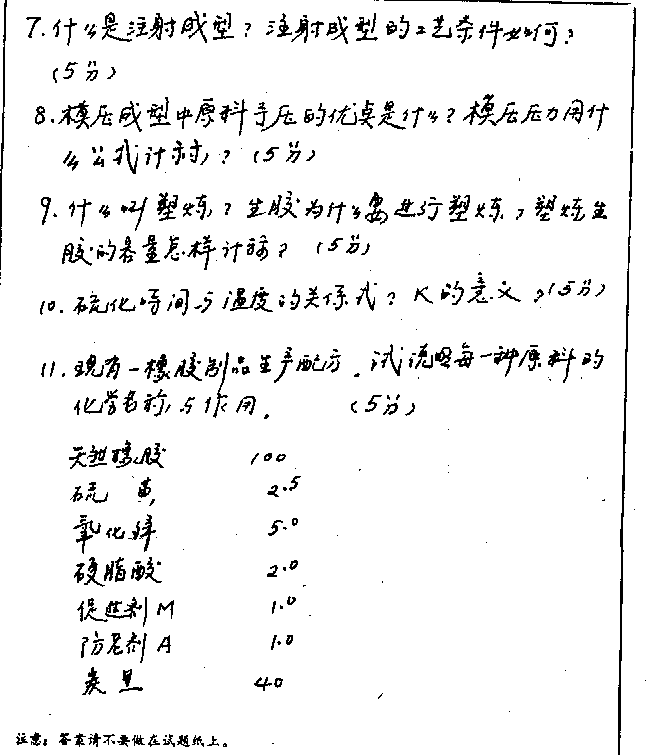 7. 什么是注射成型？注射成型的工艺条件如何？
（5分）
8. 模压成型中原料予压的优点是什么？模压压力用什
么公式计算？（5分）
9. 什么叫塑炼？生胶为什么要进行塑炼？塑炼生
胶的容量怎样计算？（5分）
10. 硫化时间与温度的关系式？K的意义？（5分）
11. 现有一橡胶制品生产配方。试说明每一种原料的
化学名称，与作用。（5分）
天然橡胶 100
硫 黄 2.5
氧化锌 5.0
硬脂酸 2.0
促进剂 M 1.0
防老剂 A 1.0
炭黑 40
注意：答案请不要做在试题纸上。